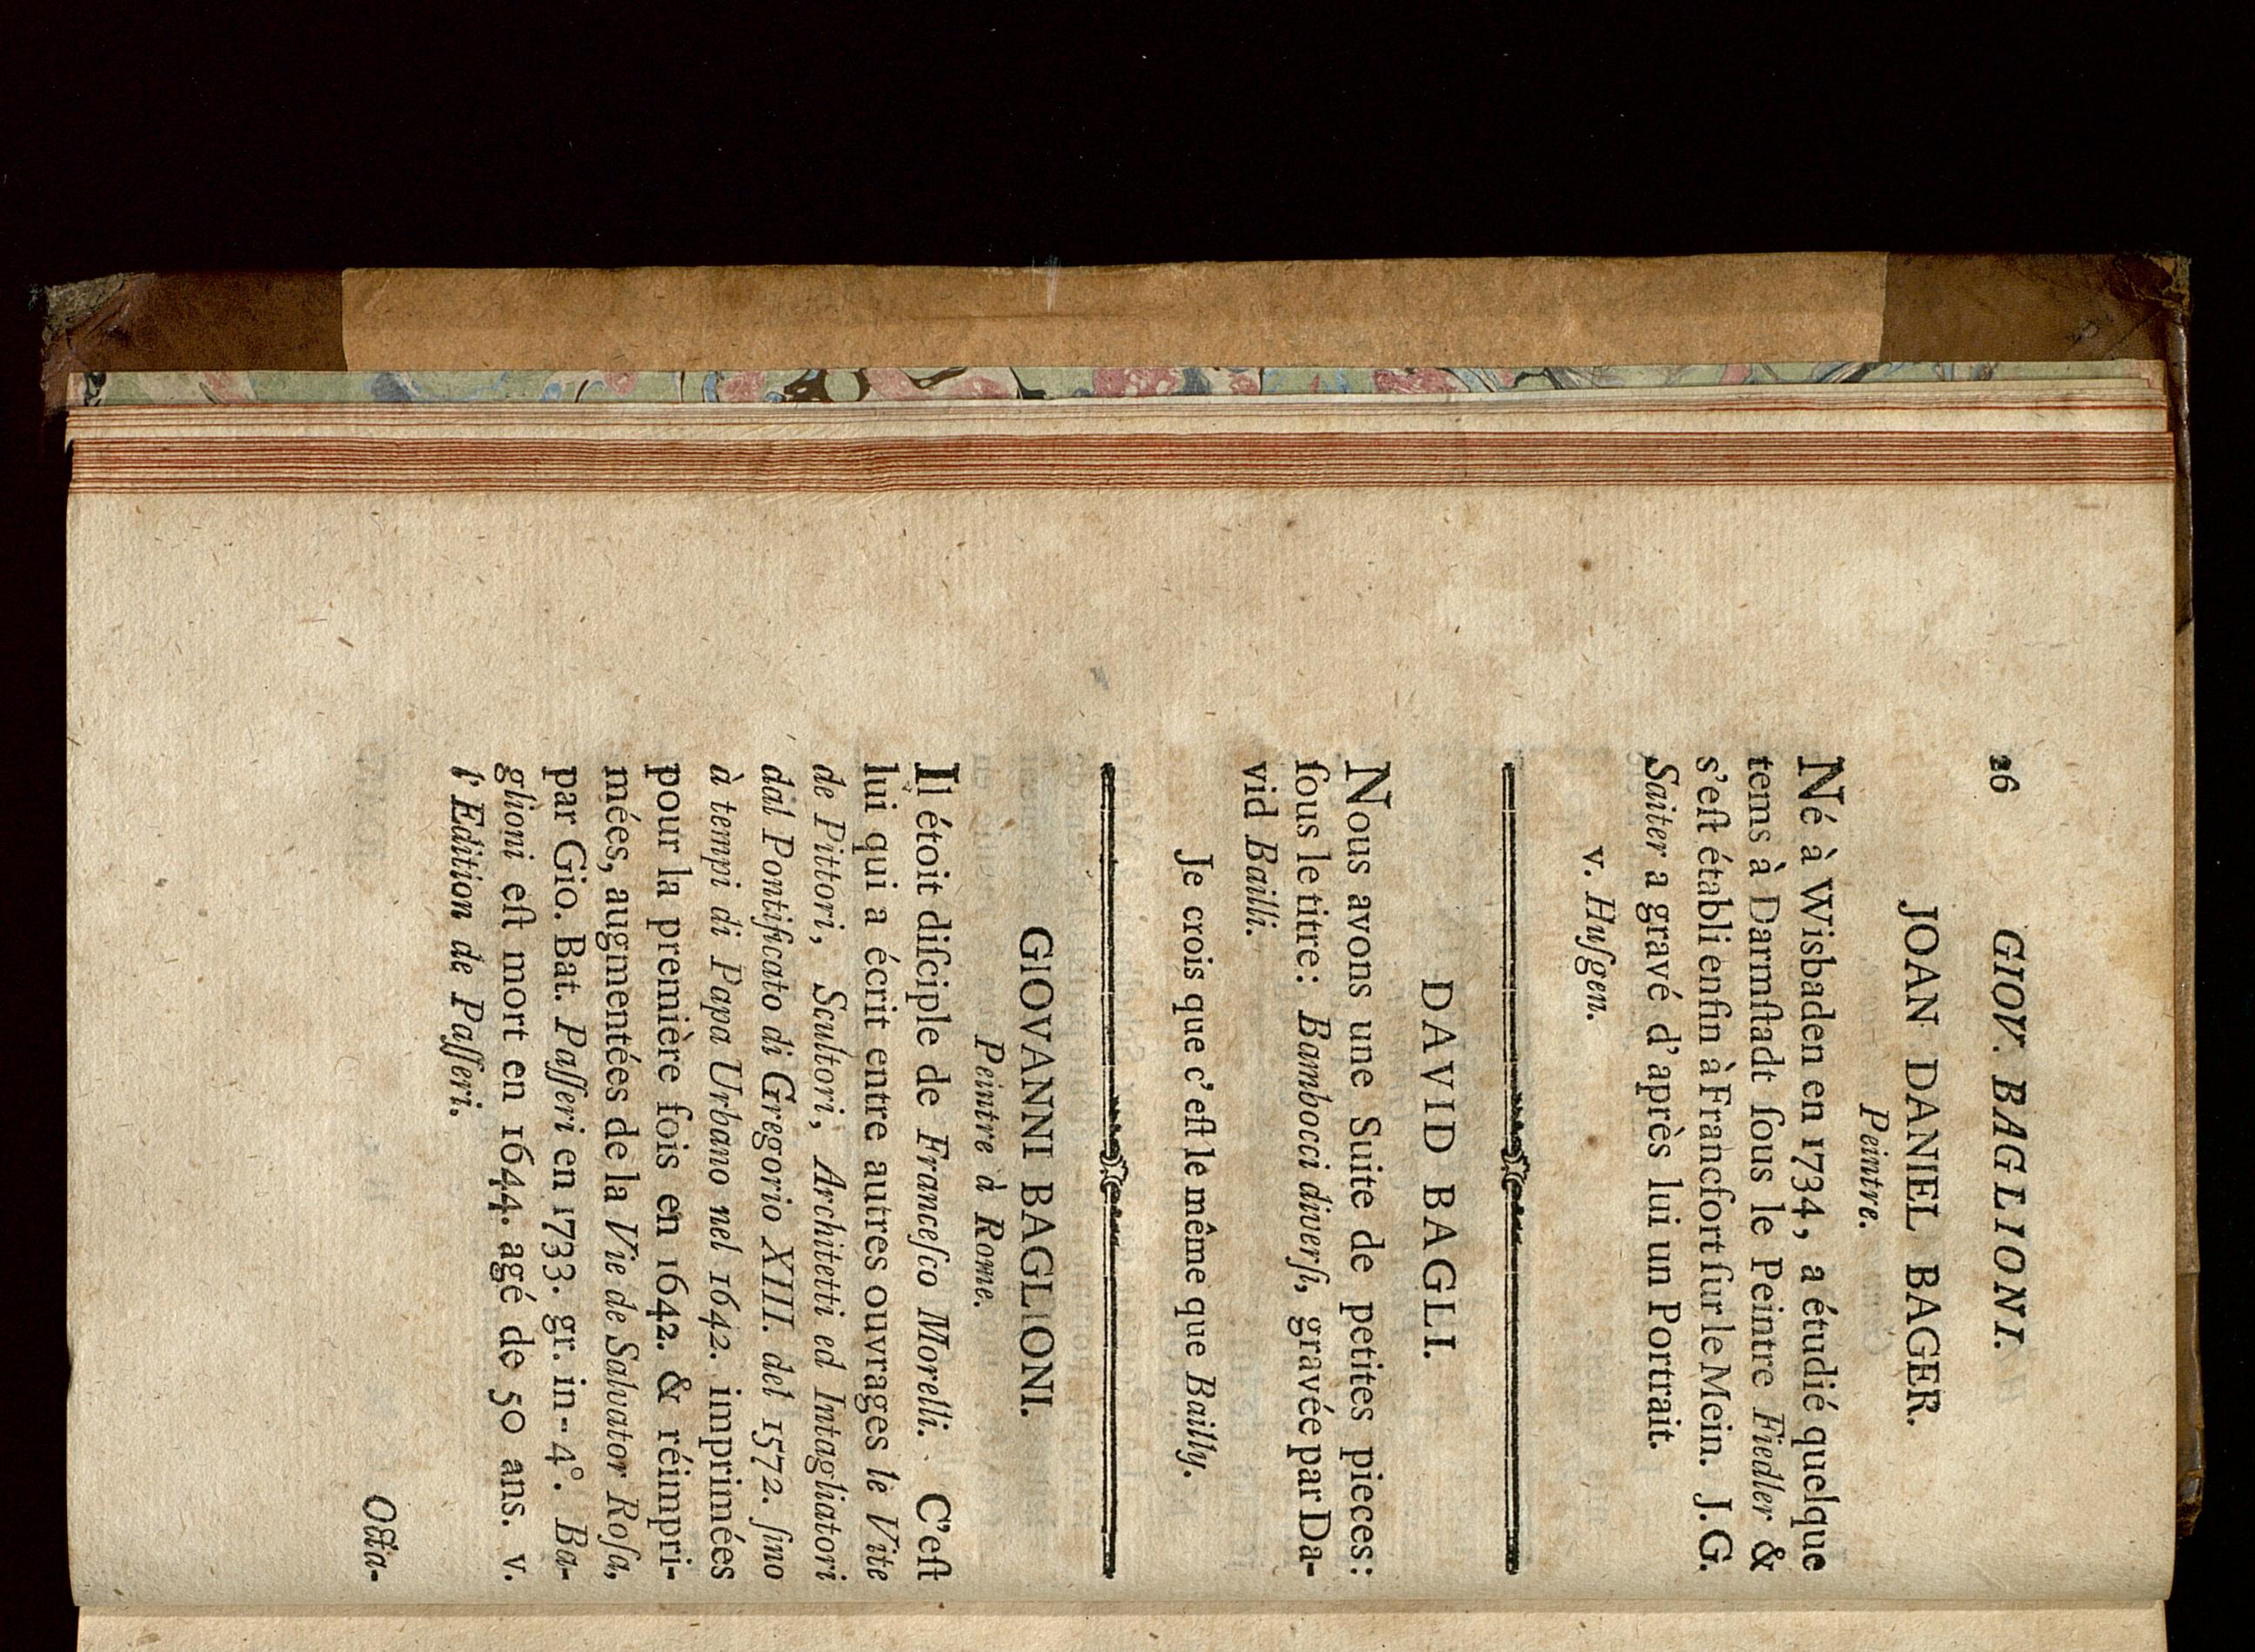 26 GIOV. BAGLIONI.
JOAN DANIEL BAGER.
Peintre.
Né à Wisbaden en 1734, a étudié quelque
tems à Darmſtadt ſous le Peintre Fiedler &
s'eſt établi enfin à Francfort ſur le Mein. J. G.
Saiter a gravé d'après lui un Portrait.
v. Huſgen.
DAVID BAGLI.
Nous avons une Suite de petites pieces:
ſous le titre: Bambocci diverſi, gravée par Da-
vid Bailli.
Je crois que c'eſt le même que Bailly.
GIOVANNI BAGLIONI.
Peintre à Rome.
Il étoit diſciple de Franceſco Morelli. C'eſt
lui qui a écrit entre autres ouvrages le Vite
de Pittori, Scultori, Architetti ed Intagliatori
dal Pontificato di Gregorio XIII. del 1572. ſino
à tempi di Papa Urbano nel 1642. imprimées
pour la première fois en 1642. & réimpri-
mées, augmentées de la Vie de Salvator Roſa,
par Gio. Bat. Paſſeri en 1733. gr. in-4°. Ba-
glioni eſt mort en 1644. agé de 50 ans. v.
l'Edition de Paſſeri.
Octa-